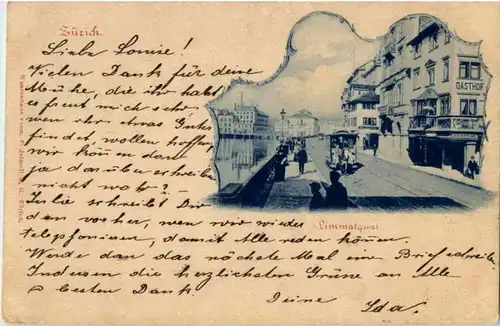 Zürich.
Liebe Louise!
Vielen Dank für deine
Mühe, die ihr habt
es freut mich sehr
wen ihr etwas Gutes
findet, wollen hoffen
wir können dan
ja darüber schreiben
nicht wahr?
Julie schreibt Dir
dan vorher, wen wir wieder
telephonieren, damit Alle reden können.
Werde dan das nächste Mal eine Brief schreiben
Indessen die herzlichsten Grüsse an Alle
besten Dank.
Deine Ida.
GASTHOF
Limmatquai